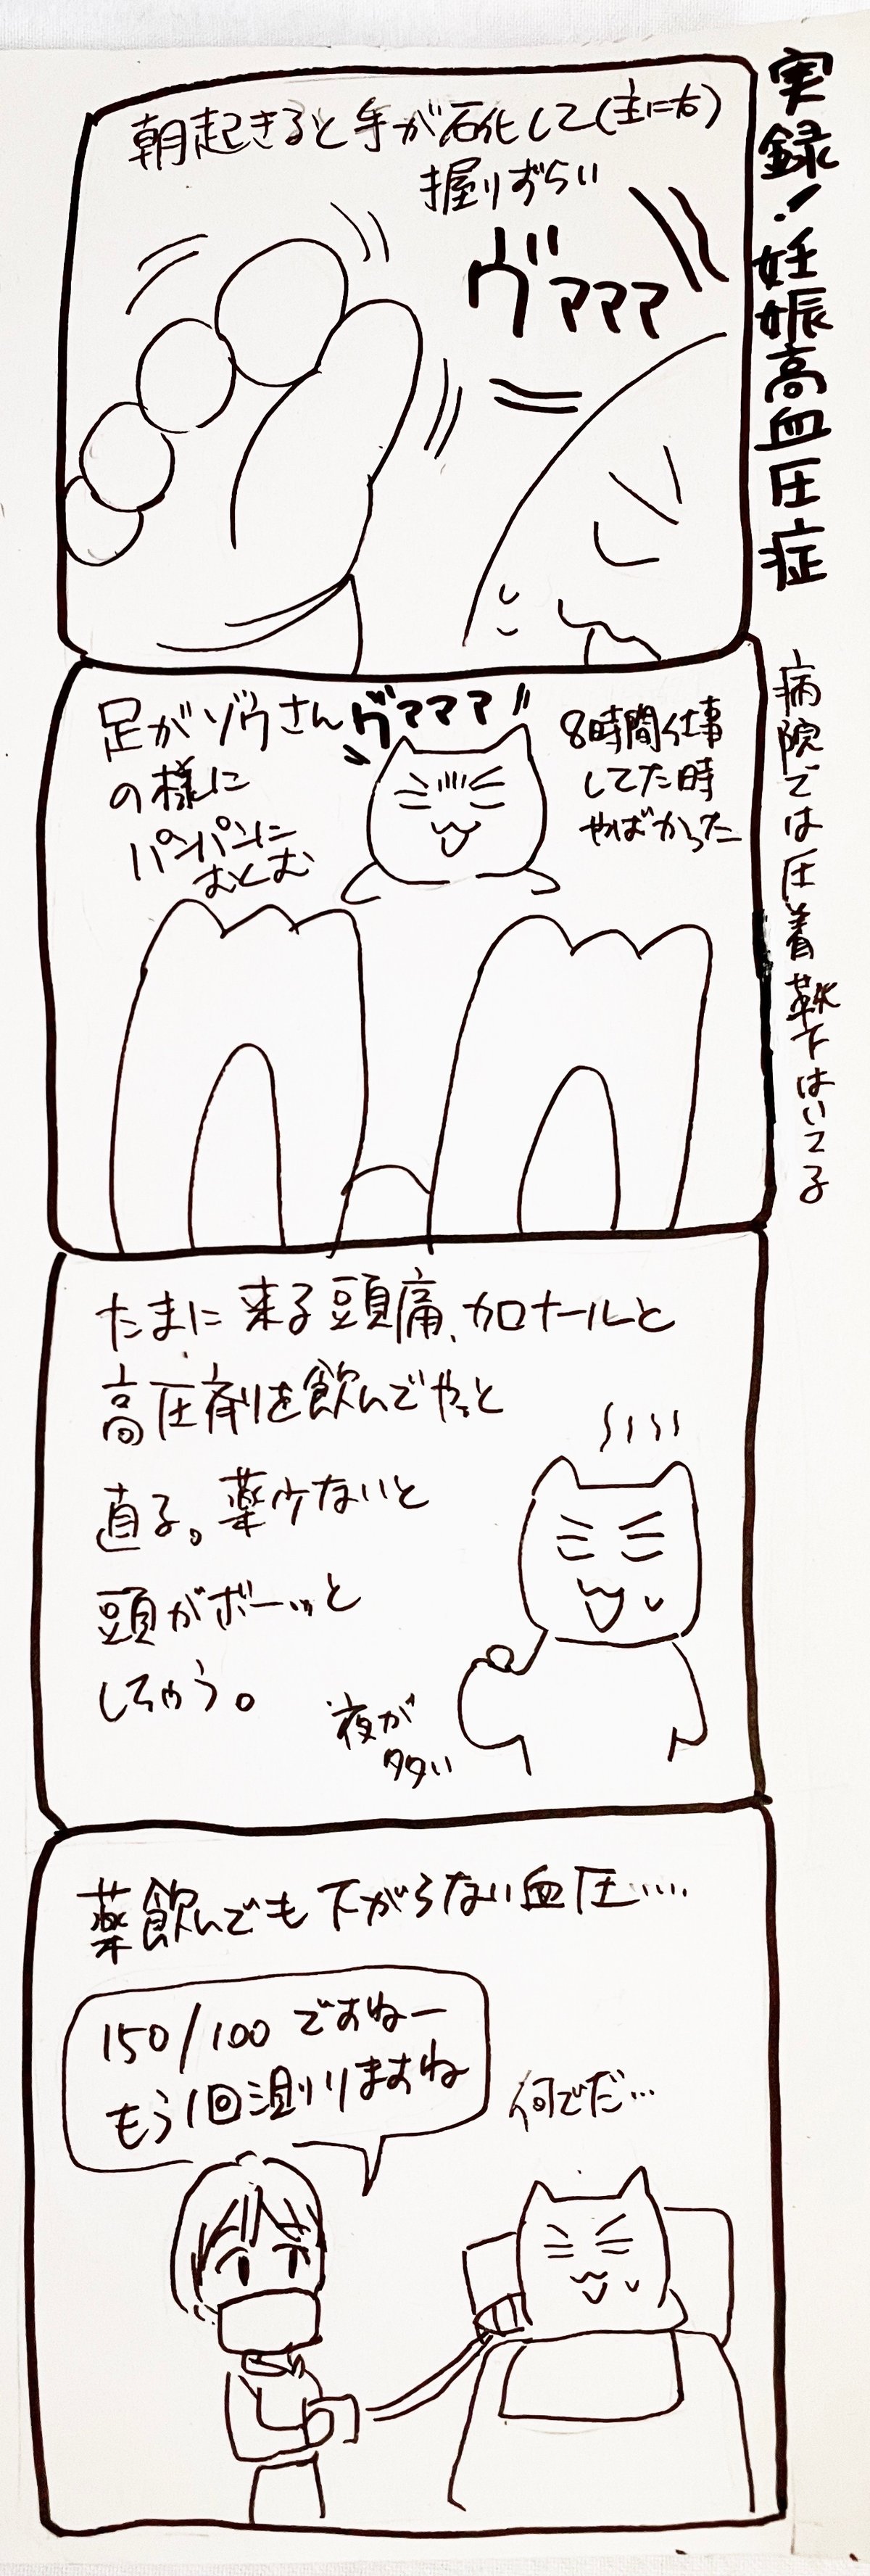 実録!妊娠高血圧症
朝起きると手が石化して(主に右)
握りずらい
ヴァァァ
足がゾウさん
の様に
パンパンに
むくむ
ヴァァァ
8時間仕事
してた時
やばかった
病院では圧着靴下はいてる
たまに来る頭痛、カロナールと
高圧剤を飲んでやっと
直る。薬少ないと
頭がボーッと
しちゃう。
夜が
多い
薬飲んでも下がらない血圧....
150/100ですねー
もう1回測りますね
何でだ...